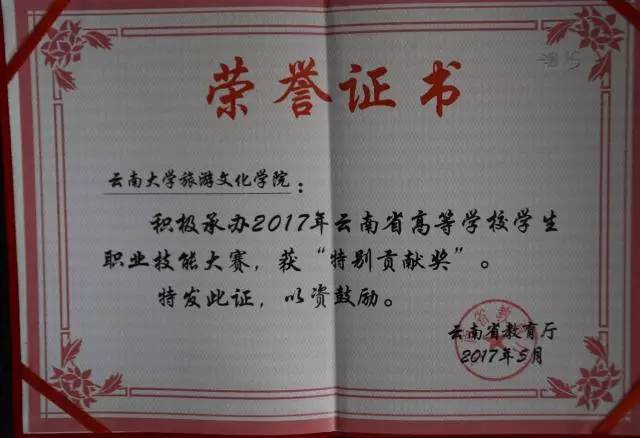 荣誉证书
云南大学旅游文化学院：
积极承办2017年云南省高等学校学生
职业技能大赛，获“特别贡献奖”。
特发此证，以资鼓励。
云南省教育厅
2017年5月